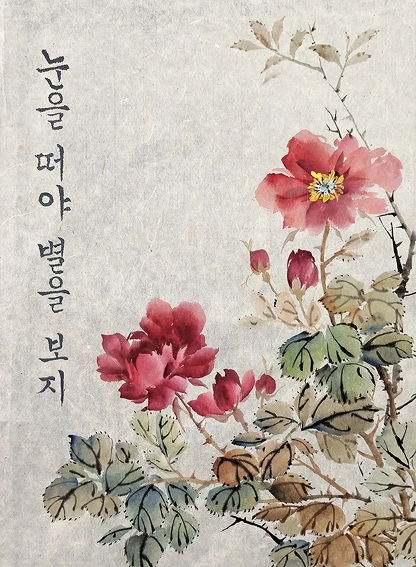 눈을 떠야 별을 보지